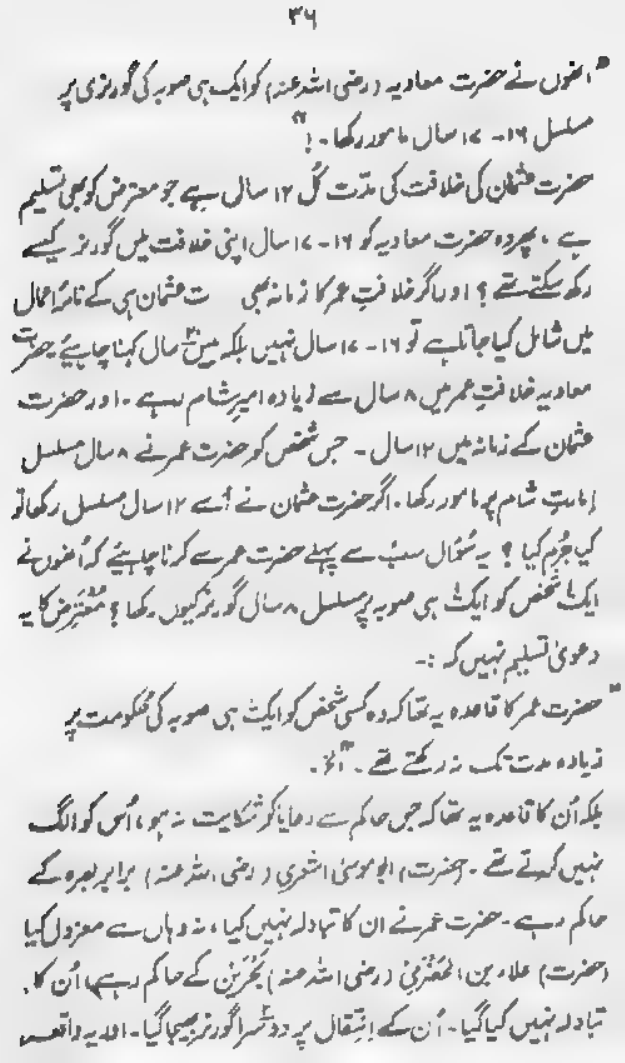 ۳۶
"انھوں نے حضرت معاویہ (رضی اللہ عنہ) کو ایک ہی صوبہ کی گورنری پر
مسلسل ۱۶-۱۷ سال مامور رکھا۔!"
حضرت عثمان کی خلافت کی مدّت کُل ۱۲ سال ہے جو معترض کو بھی تسلیم
ہے، پھر وہ حضرت معاویہ کو ۱۶-۱۷ سال اپنی خلافت میں گورنر کیسے
رکھ سکتے تھے؟ اور اگر خلافتِ عمر کا زمانہ بھی ت عثمان ہی کے نامۂ اعمال
میں شامل کیا جاتا ہے تو ۱۶-۱۷ سال نہیں بلکہ بیس ۲۰ سال کہنا چاہیئے۔ حضرت
معاویہ خلافتِ عمر میں ۸ سال سے زیادہ امیرِ شام رہے۔ اور حضرت
عثمان کے زمانہ میں ۱۲ سال۔ جس شخص کو حضرت عمر نے ۸ سال مسلسل
إمارتِ شام پر مامور رکھا۔ اگر حضرت عثمان نے اُسے ۱۲ سال مسلسل رکھا تو
کیا جُرم کیا؟ یہ سُوال سب سے پہلے حضرت عمر سے کرنا چاہیئے کہ اُنھوں نے
ایک شخص کو ایک ہی صوبہ پر مسلسل ۸ سال گورنر کیوں رکھا؟ مُعْتَرِض کا یہ
دعویٰ تسلیم نہیں کہ :-
"حضرت عمر کا قاعدہ یہ تھا کہ وہ کسی شخص کو ایک ہی صوبہ کی حُکومت پر
زیادہ مدت تک نہ رکھتے تھے۔" الخ۔
بلکہ اُن کا قاعدہ یہ تھا کہ جس حاکم سے رعایا کو شکایت نہ ہو، اُس کو الگ
نہیں کرتے تھے۔ (حضرت) ابو موسیٰ اشعری (رضی اللہ عنہ) برابر بصرہ کے
حاکم رہے۔ حضرت عمر نے ان کا تبادلہ نہیں کیا، نہ وہاں سے معزول کیا
(حضرت) علاء بن الحَضْرَمِیْ (رضی اللہ عنہ) بَحْرَیْن کے حاکم رہے، اُن کا
تبادلہ نہیں کیا گیا۔ اُن کے اِنتِقال پر دوسرا گورنر بھیجا گیا۔ اور یہ واقعہ